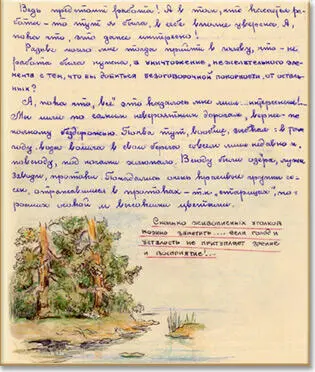 Ведь предстоит работа! А в том, что касается ра-
боты - то тут я была в себе вполне уверена. А,
пока что, это даже интересно!
Разве могло мне тогда прийти в голову, что - не
работа была нужна, а уничтожение, нежелательного эле-
мента с тем, что бы добиться безоговорочной покорности, от осталь-
ных?
А, пока что, всё это казалось мне лишь... интересным!..
Мы шли по самым невероятным дорогам, вернее - по
полному бездорожью. Почва тут, вообще, зыбкая: в том
году вода вошла в свои берега совсем лишь недавно и,
повсюду, под ногами хлюпало. Всюду были озёра, лужи,
заводи, протоки. Попадались очень красивые группы со-
сен, отражавшиеся в протоках - т.н. "старицах", по-
росших осокой и высокими цветами.
Сколько живописных уголков
можно заметить... если голод и
усталость не притупляет зрение
и восприятие!..